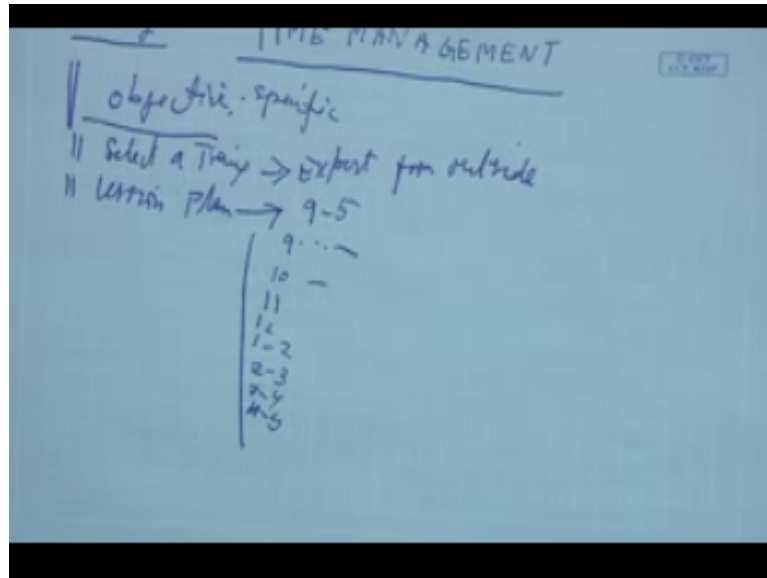 TIME MANAGEMENT
objective. specific
Select a → Expert from outside
Lesson Plan → 9-5
9...—
10 —
11
12
1-2
2-3
3-4
4-5